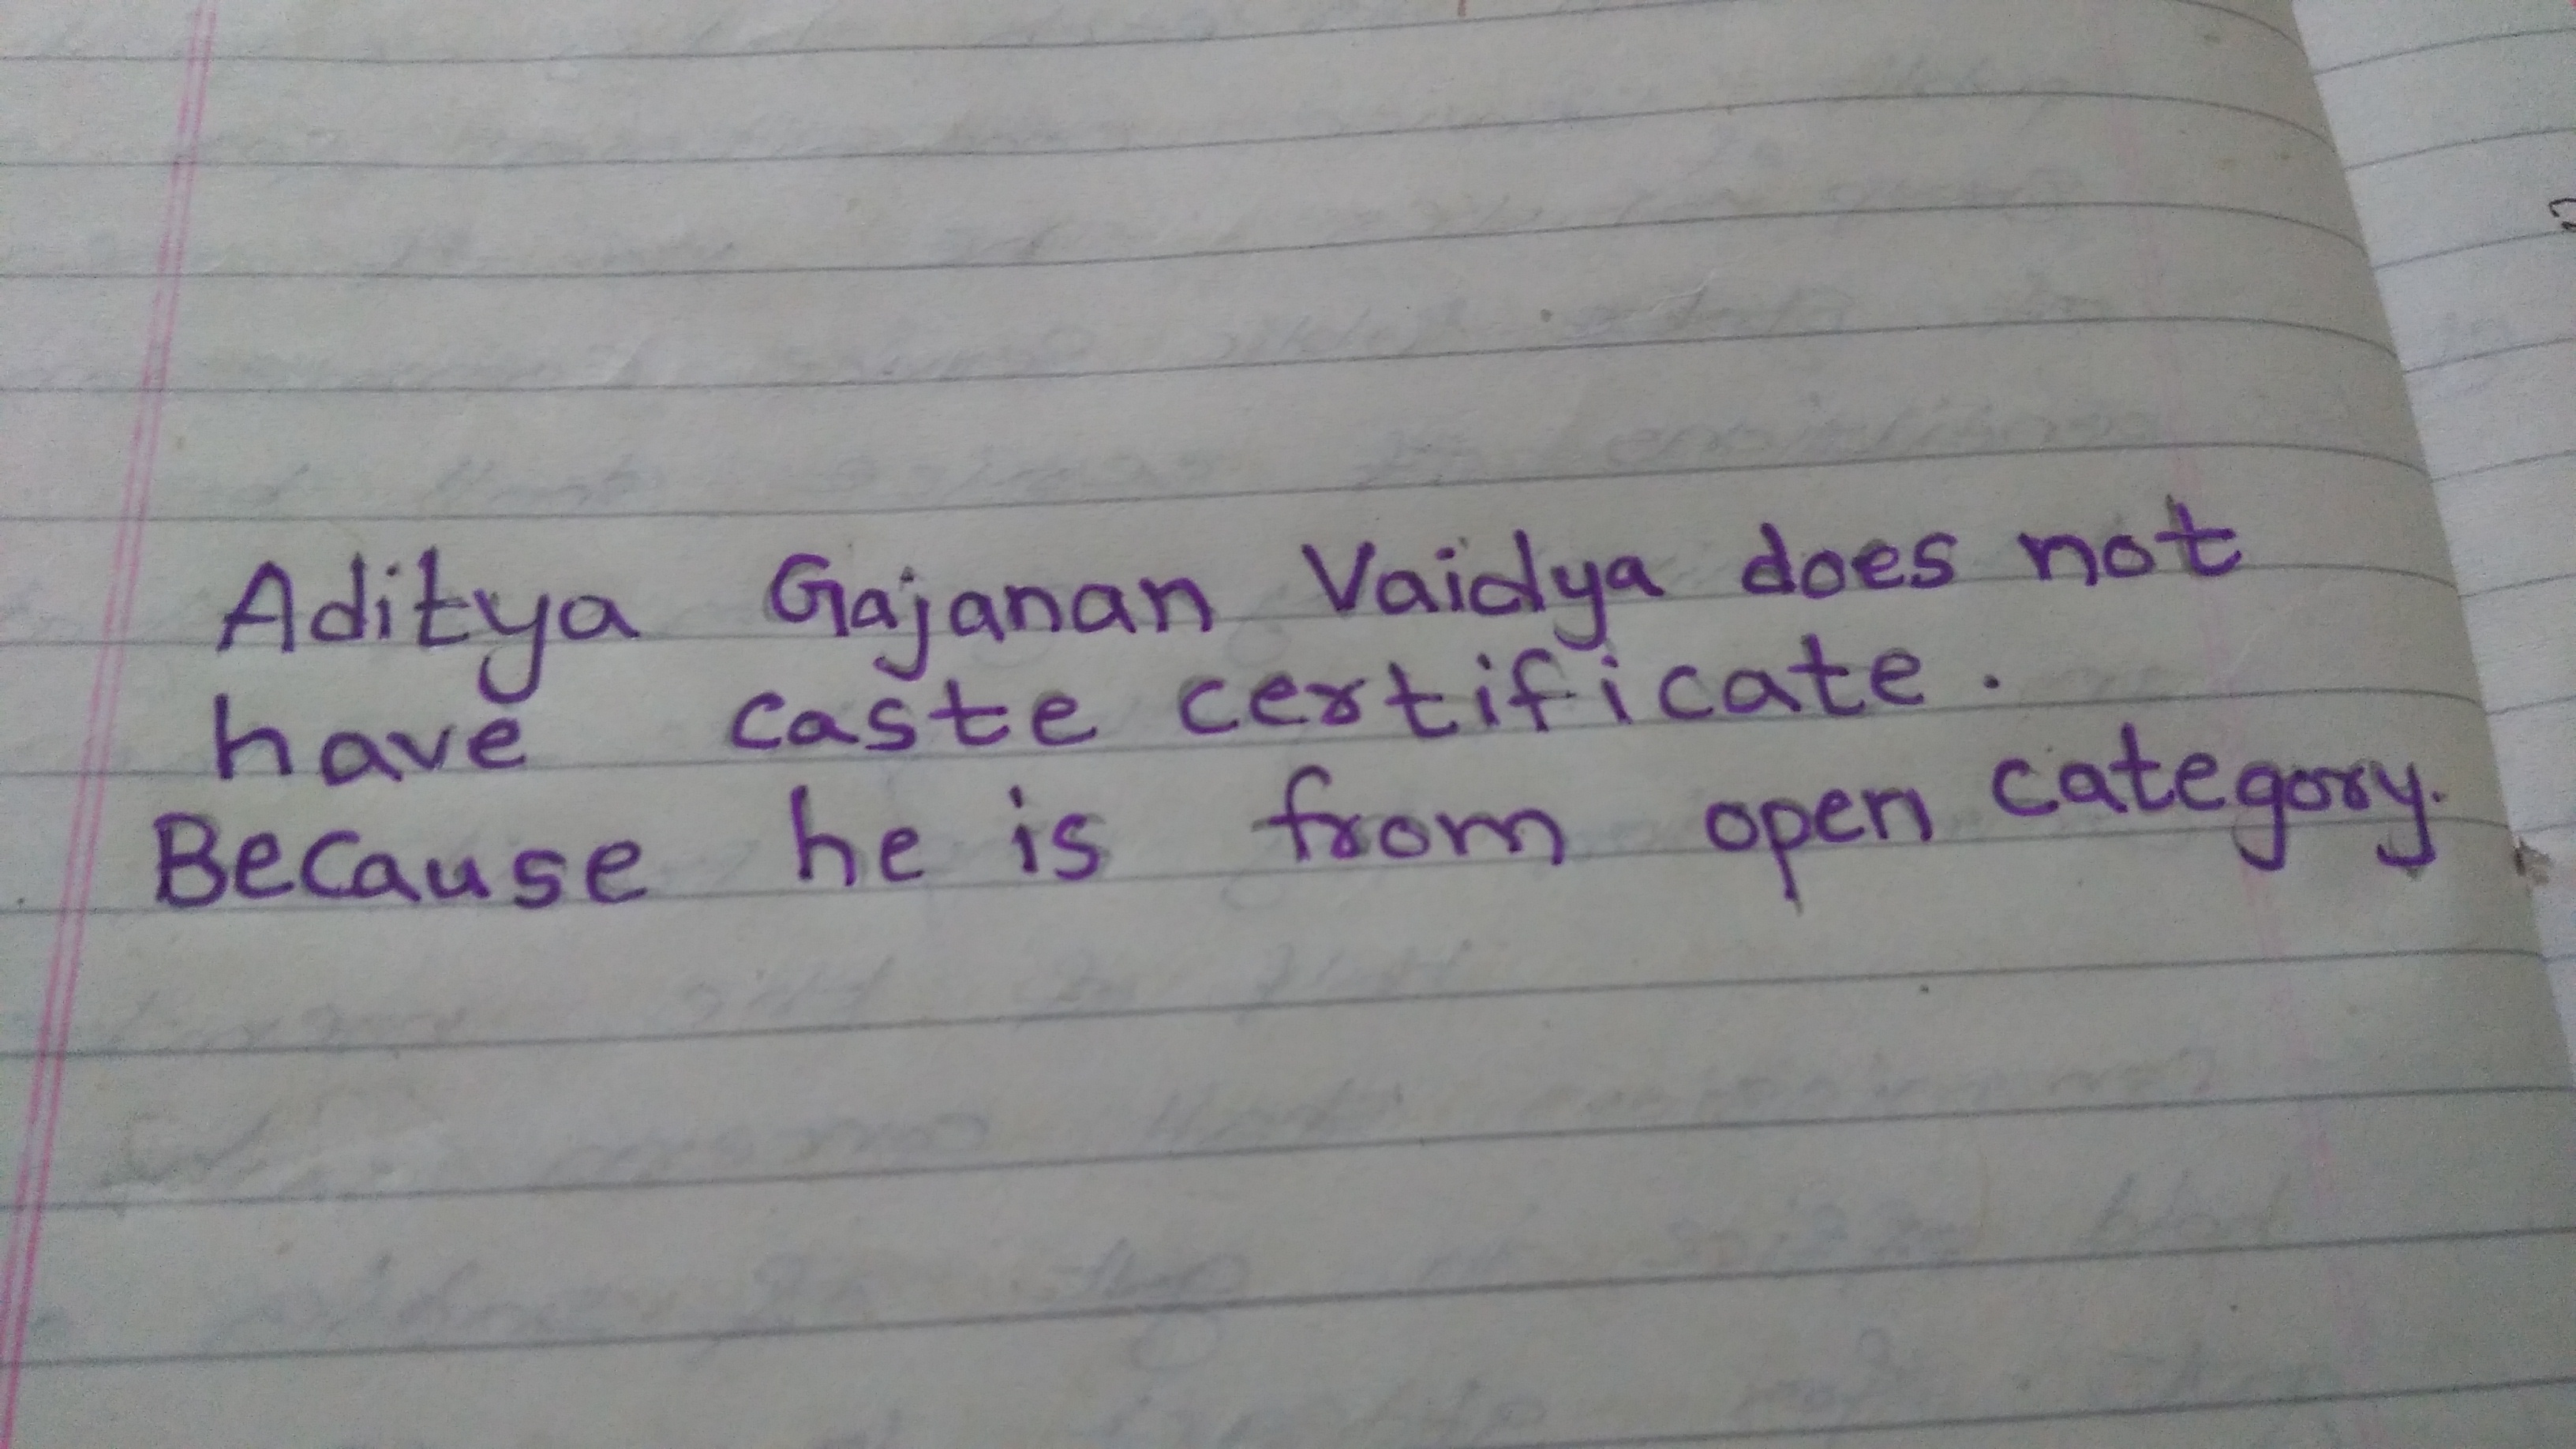 Aditya Gajanan Vaidya does not
have caste certificate.
Because he is from open category.